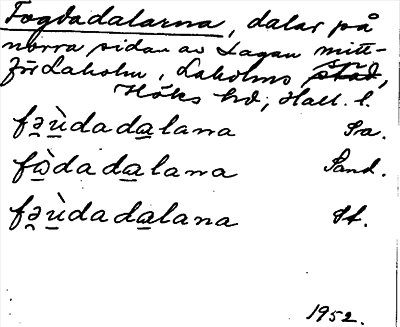 Fogdadalarna, dalar på
norra sidan av Lagan mitt-
för Laholm, Laholms sn,
Höks hd, Hall. l.
fəùdadalana Sa.
fòdadalana Sand.
fəùdadalana St.
1952.